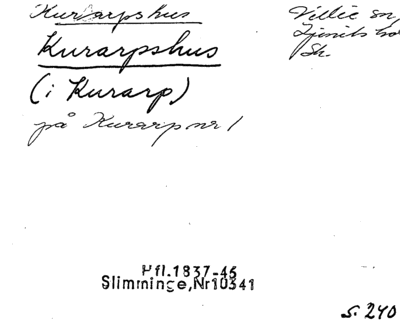 Kurarpshus
Villie sn
Kurarpshus
Ljunits hd
Sk.
(i Kurarp)
på Kurarp nr 1
Hfl.1837-46
Slimminge,Nr10341
s. 240